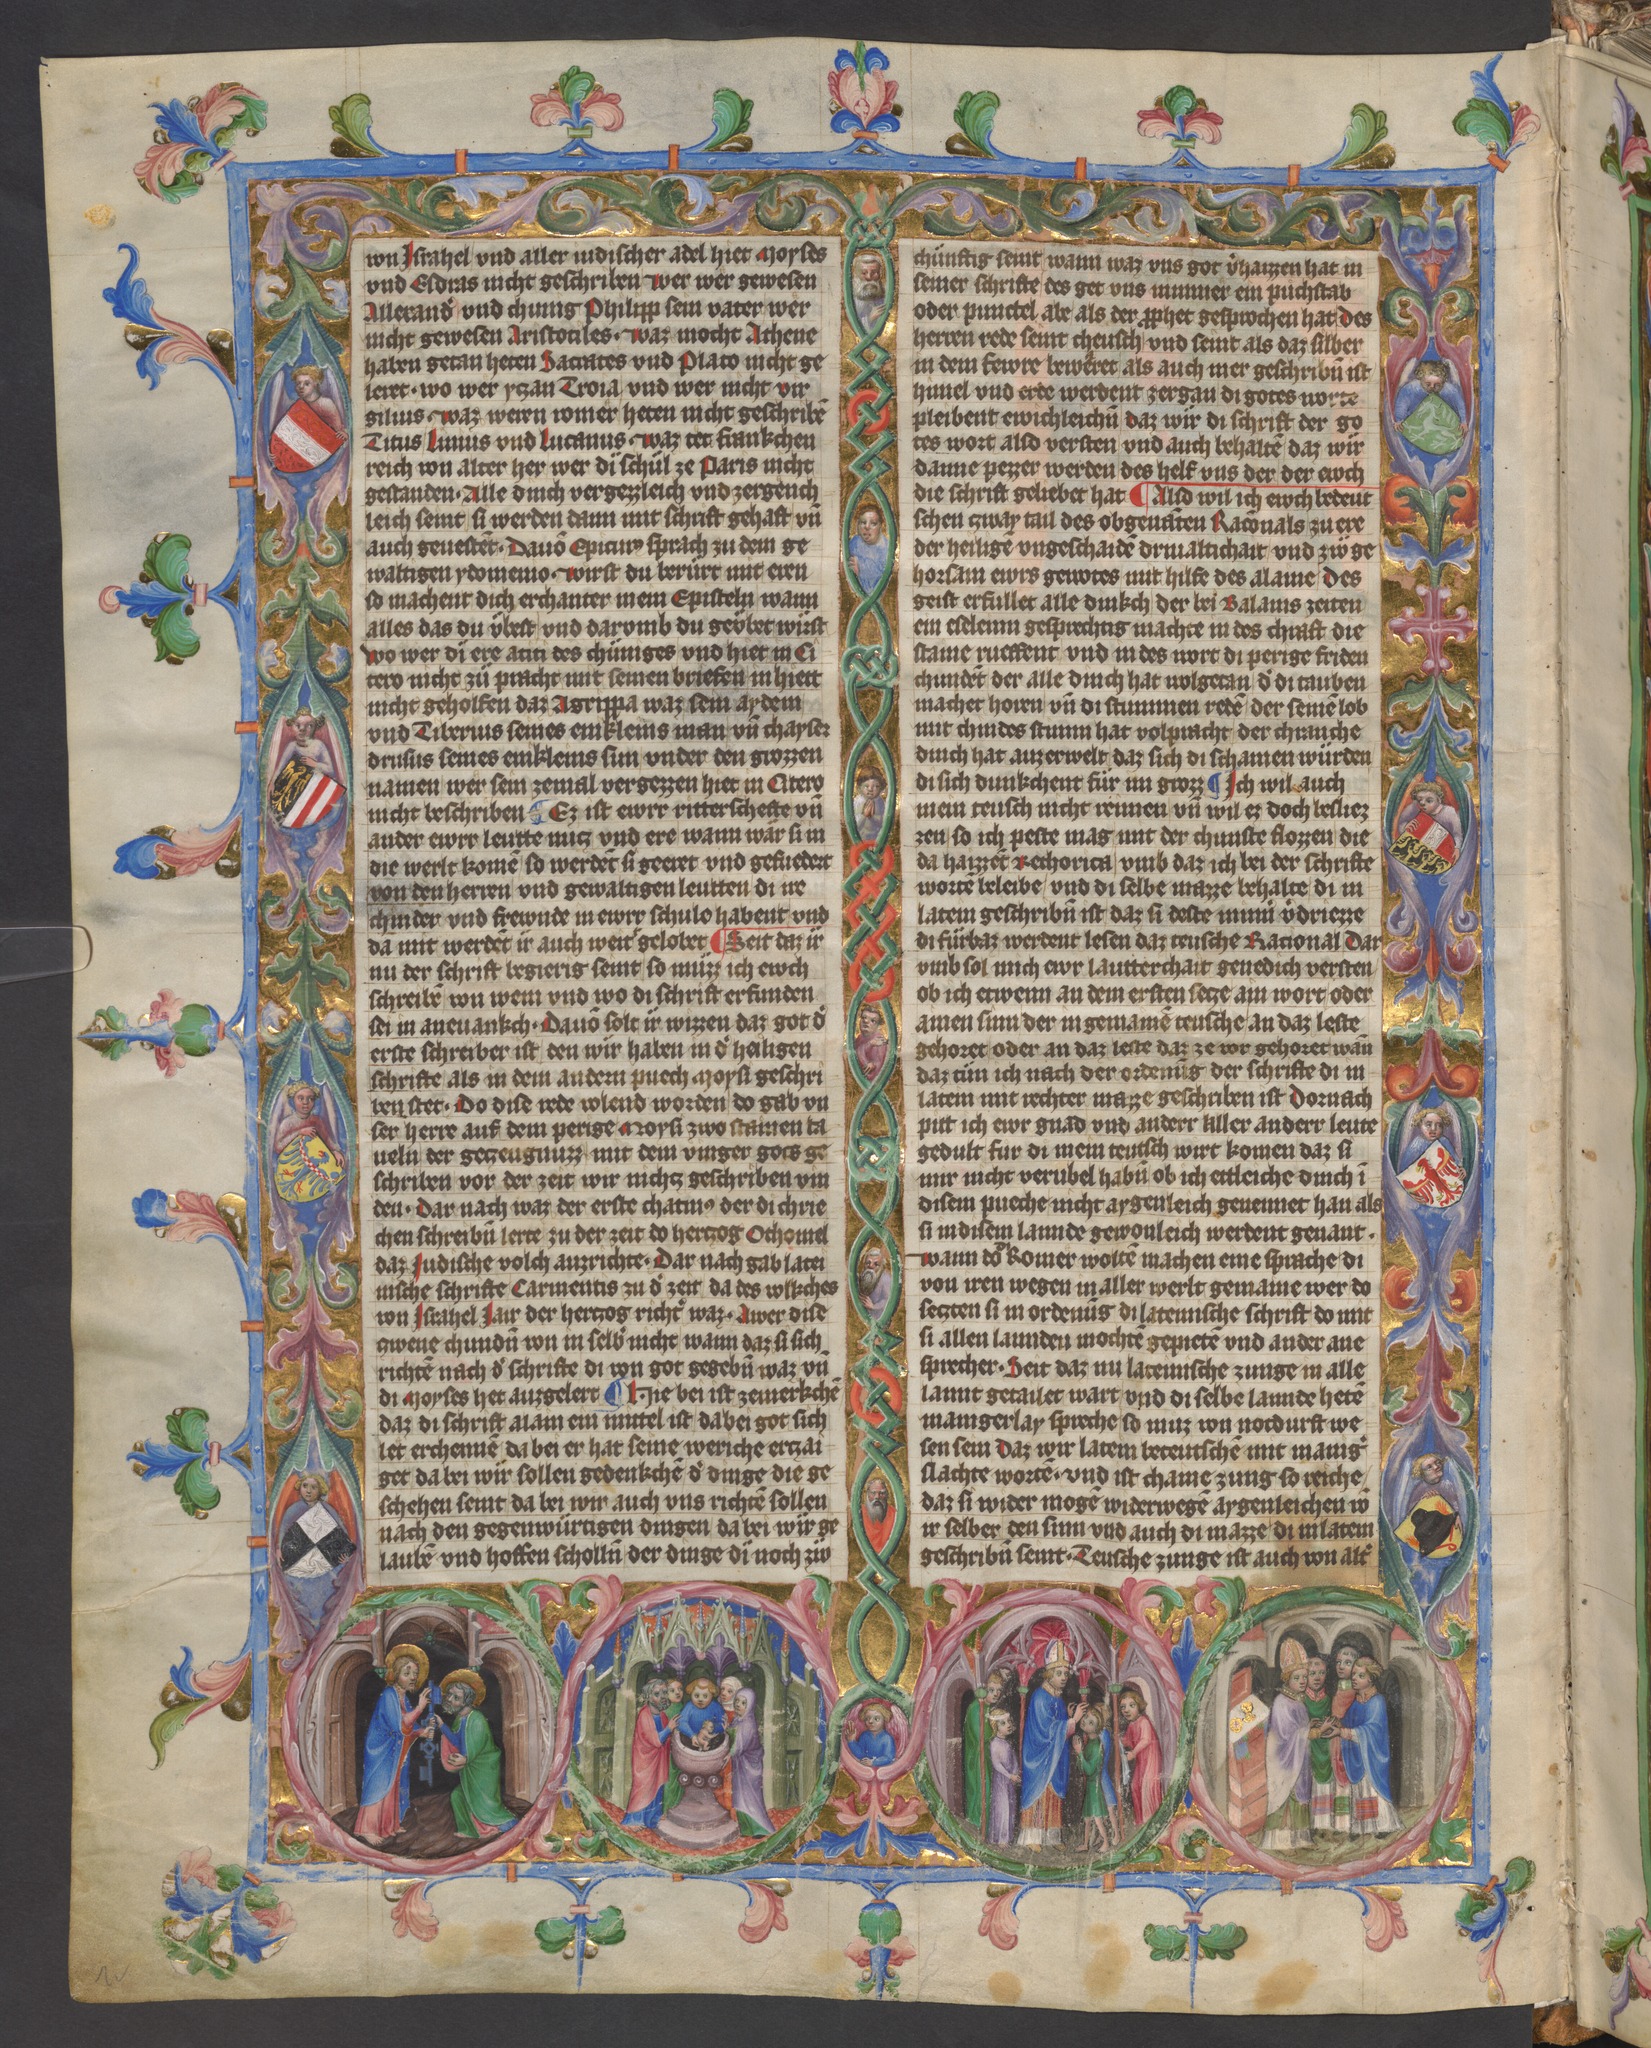 von Israhel vnd aller iudischer adel hiet Moyses
vnd Esdras nicht geschriben Wer wer gewesen
Allexandˀ vnd chunig Philipp sein vater wer
nicht gewesen Aristotiles · waz mocht Athene
haben getan heten Sacrates vnd Plato nicht ge
leret · wo wer yczan Troia vnd wer nicht vir
gilius · waz weren romer heten nicht geschribē
Titus Liuius vnd Lucanus · waz tet frankchen
reich von alter her wer di schul ze Paris nicht
gestanden · Alle dinch vergezzleich vnd zergench
leich seint si werden dann mit schrift gehaft vn̄
auch geuestēt · Dauō Epicurꝰ sprach zu dem ge
waltigen ydomenio · wirst du berürt mit eren
so machent dich erchanter mein Episteln wann
alles das du v̈best vnd darvmb du gev̈bet würst
Wo wer di ere atiti des chüniges vnd hiet in Ci
cero nicht zü pracht mit seinen briefen in hiett
nicht geholfen daz Agrippa waz sein aydem
vnd Tiberius seines enikleins man vn̄ chayser
drusus seines enikleins sun vnder den grozzen
namen wer sein zemal vergezzen hiet in Citero
nicht beschriben ¶ Ez ist ewrr ritterschefte vn̄
ander ewrr leutte nucz vnd ere wann wär si in
die werlt komē so werdēt si geeret vnd gefuedert
von den herren vnd gewaltigen leutten di ire
chinder vnd frewnde in ewrr schule habent vnd
da mit werdēt ir auch weitˀ gelobet ¶ Seit daz ir
nu der schrift begierig seint so müzz ich ewch
schreibē von wem vnd wo di schrift erfunden
sei in aneuankch · Dauō solt ir wizzen daz got dˀ
erste schreiber ist den wir haben in dˀ heiligen
schrifte als in dem andern puech Moysi geschri
ben stet · Do dise rede volend worden do gab vn
ser herre auf dem perige Moysi zwo stainen ta
ueln der geczeugnuzz mit dem vinger gots ge
schriben vor der zeit wir nichtz geschriben vin
den · Dar nach waz der erste chatmꝰ der di chrie
chen schreibn̄ lerte zu der zeit do herczog Othoniel
daz Judische volch auzrichte · Dar nach gab latei
nische schrifte Carmentis zu dˀ zeit da des volkches
von Israhel Jair der herczog richtˀ waz · Awer dise
zwene chundn̄ von in selbˀ nicht wann daz si sich
richtē nach dˀ schrifte di von got gegebn̄ waz vn̄
di Moyses het auzgelert ¶ Hie bei ist zemerkchē
daz di schrift alain ein mittel ist da bei got sich
let erchennē da bei er hat seine weriche erczai
get da bei wir sollen gedenkchē dˀ dinge die ge
schehen seint da bei wir auch vns richtē sollen
nach den gegenwürtigen dingen da bei wir ge
laubē vnd hoffen scholln̄ der dinge di noch zü
chünftig seint wann waz vns got vˀhaizzen hat in
seiner schrifte des get vns nimmer ein puchstab
oder punctel abe als der ꝓphet gesprochen hat des
herren rede seint cheusch vnd seint als daz silber
in dem fewre beweret als auch mer geschribn̄ ist
himel vnd erde werdent zergan di gotes worte
pleibent ewichleichn̄ daz wir di schrift der go
tes wort also versten vnd auch behaltē daz wir
danne pezzer werden des helf vns der der ewch
die schrift geliebet hat ¶ Also wil ich ewch bedeut
schen czway tail des obgenātēn Racōnals zu ere
der heiligē vngeschaidē driualtichait vnd zü ge
horsam ewrs gepotes mit hilfe des alaine des
geist erfullet alle dinkch der bei Balams zeiten
ein eseleinn gesprechtig machte in des chraft die
staine rueffent vnd in des wort di perige friden
chundēt der alle dinch hat wolgetan dˀ di tauben
machet horen vn̄ di stummen redē der seinē lob
mit chindes stimm hat volpracht der chranche
dinch hat auzerwelt daz sich di schamen würden
di sich dunkchent für im grozz ¶ Ich wil auch
mein teusch nicht reimen vn̄ wil ez doch besliez
zen so ich peste mag mit der chunste slozzen die
da haizzēt Rethorica vmb daz ich bei der schrifte
wortē beleibe vnd di selbe mazze behalte di in
latein geschribn̄ ist daz si deste minnˀ vˀdriezze
di fürbaz werdent lesen daz teusche Racional Dar
vmb sol mich ewr lautterchait genedich versten
ob ich etwenn an dem ersten secze ain wort oder
ainen sinn der in gemainē teusche an daz leste
gehoret oder an daz leste daz ze vor gehoret wān
daz tün ich nach der ordenūg der schrifte di in
latein mit rechter mazze geschriben ist Dornach
pitt ich ewr gnad vnd anderr Aller anderr leute
gedult fur di mein teutsch wirt komen daz si
mir nicht verubel habn̄ ob ich ettleiche dinch ī
disem pueche nicht aygenleich genennet han als
si in disem lannde gewonleich werdent genant ·
wann do Romer woltē machen eine sprache di
von iren wegen in aller werlt gemaine wer do
seczten si in ordenūg di lateinische schrift do mit
si allen lannden mochtē gepietē vnd ander ane
sprecher · Seit daz nu lateinische zunge in alle
lannt getailet wart vnd di selbe lannde hetē
manigerlay spreche so muz von notdurft we
sen sein daz wir latein beteutschē mit manigˀ
slachte wortē · vnd ist chaine zung so reiche
daz si wider mogē widerwegē aygenleichen vō
ir selber den sinn vnd auch di mazze di in latein
geschribn̄ seint · Teusche zunge ist auch von altˀ